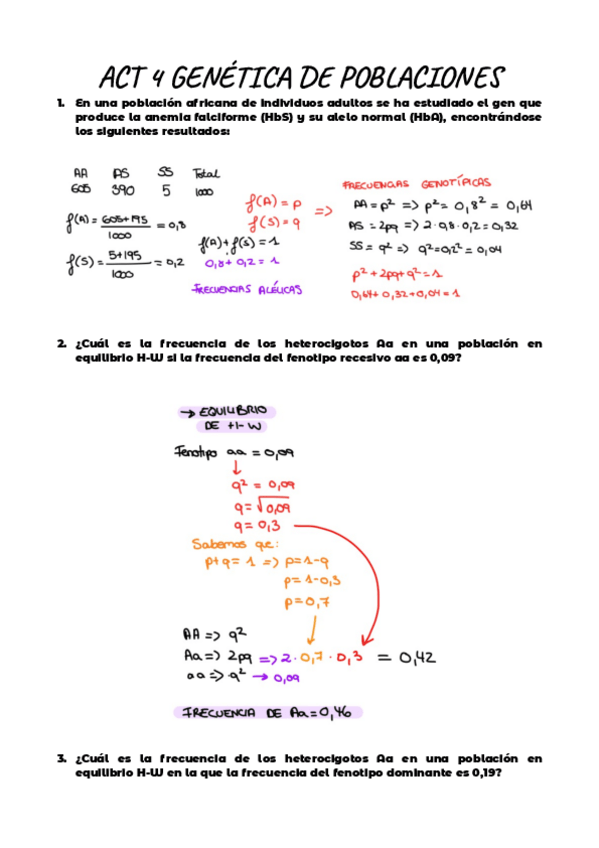 ACT 4 GENÉTICA DE POBLACIONES
1. En una población africana de individuos adultos se ha estudiado el gen que
produce la anemia falciforme (HbS) y su alelo normal (HbA), encontrándose
los siguientes resultados:
AA AS SS Total
605 390 5 1000
f(A) = 605+195 / 1000 = 0,8
f(S) = 5+195 / 1000 = 0,2
f(A) + f(S) = 1
0,8 + 0,2 = 1
FRECUENCIAS ALÉLICAS
f(A) = p
f(S) = q
=>
FRECUENCIAS GENOTÍPICAS
AA = p² => p² = 0,8² = 0,64
AS = 2pq => 2·0,8·0,2 = 0,32
SS = q² => q² = 0,2² = 0,04
p² + 2pq + q² = 1
0,64 + 0,32 + 0,04 = 1
2. ¿Cuál es la frecuencia de los heterocigotos Aa en una población en
equilibrio H-W si la frecuencia del fenotipo recesivo aa es 0,09?
→ EQUILIBRIO
DE H-W
Fenotipo aa = 0,09
q² = 0,09
q = √0,09
q = 0,3
Sabemos que:
p + q = 1 => p = 1-q
p = 1-0,3
p = 0,7
AA => q²
Aa => 2pq => 2 · 0,7 · 0,3 = 0,42
aa => q² → 0,09
FRECUENCIA DE Aa = 0,46
3. ¿Cuál es la frecuencia de los heterocigotos Aa en una población en
equilibrio H-W en la que la frecuencia del fenotipo dominante es 0,19?